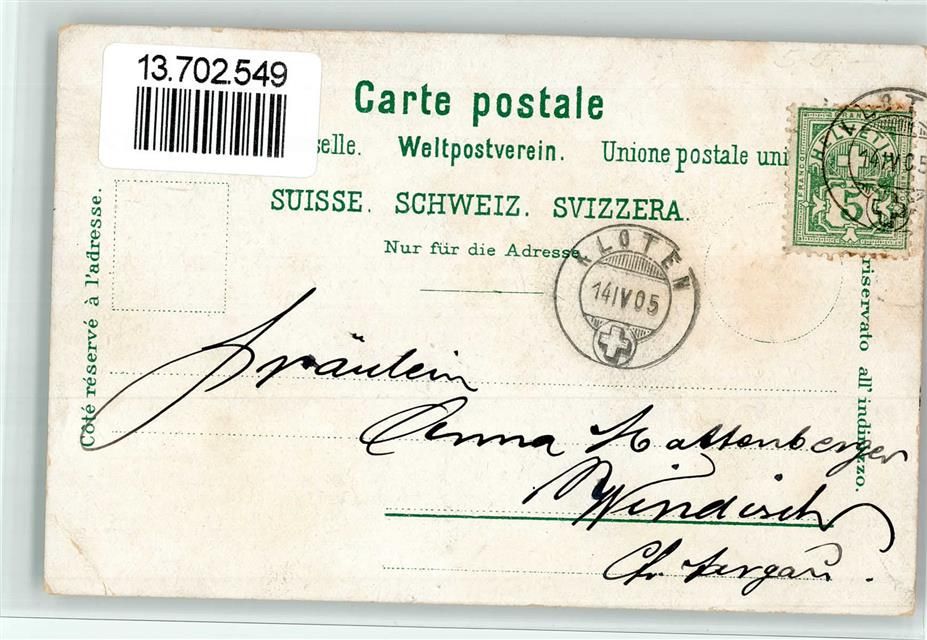 13.702.549
Carte postale
selle. Weltpostverein. Unione postale uni
SUISSE. SCHWEIZ. SVIZZERA.
Nur für die Adresse
Côté réservé à l'adresse.
riservato all'indirizzo.
FRANCO
HELVETIA
5
14 IV 05
KLOTEN
14 IV 05
Fräulein
Anna Hattenberger
Windisch
Ct. Aargau.